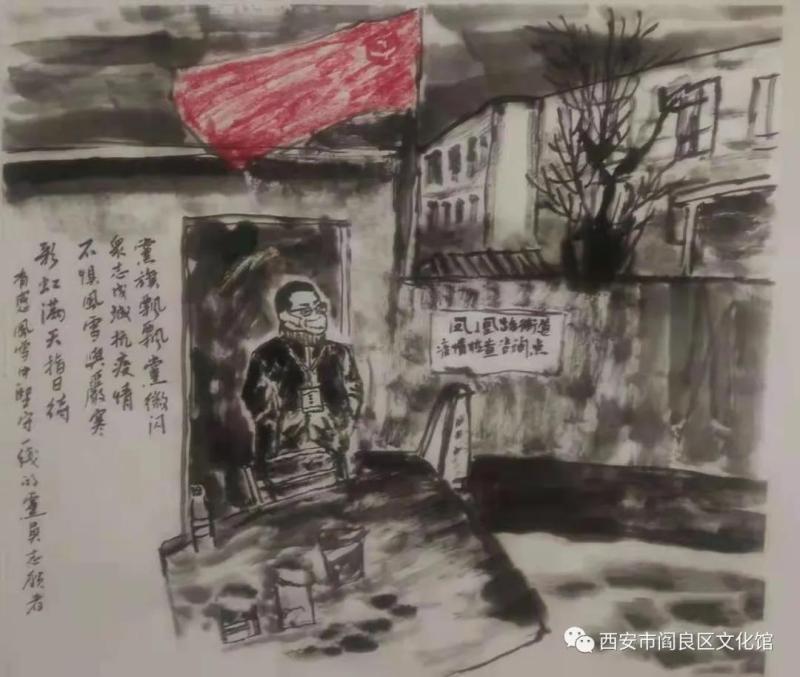 黨旗飄飄黨徽闪
眾志成城抗疫情
不惧風雪與嚴寒
彩虹滿天指日待
有感風雪中堅守一线的黨員志愿者
凤凰路街道
疫情检查咨询点
西安市阎良区文化馆